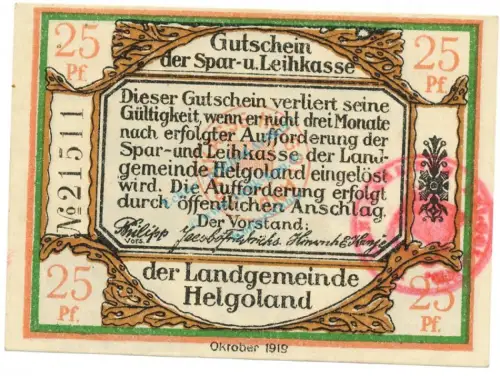 25
Pf.
Gutschein
der Spar- u. Leihkasse
25
Pf.
No 21511
Dieser Gutschein verliert seine
Gültigkeit, wenn er nicht drei Monate
nach erfolgter Aufforderung der
Spar- und Leihkasse der Land-
gemeinde Helgoland eingelöst
wird. Die Aufforderung erfolgt
durch öffentlichen Anschlag.
Der Vorstand:
Philipp
Vors.
25
Pf.
der Landgemeinde
Helgoland
25
Pf.
Oktober 1919